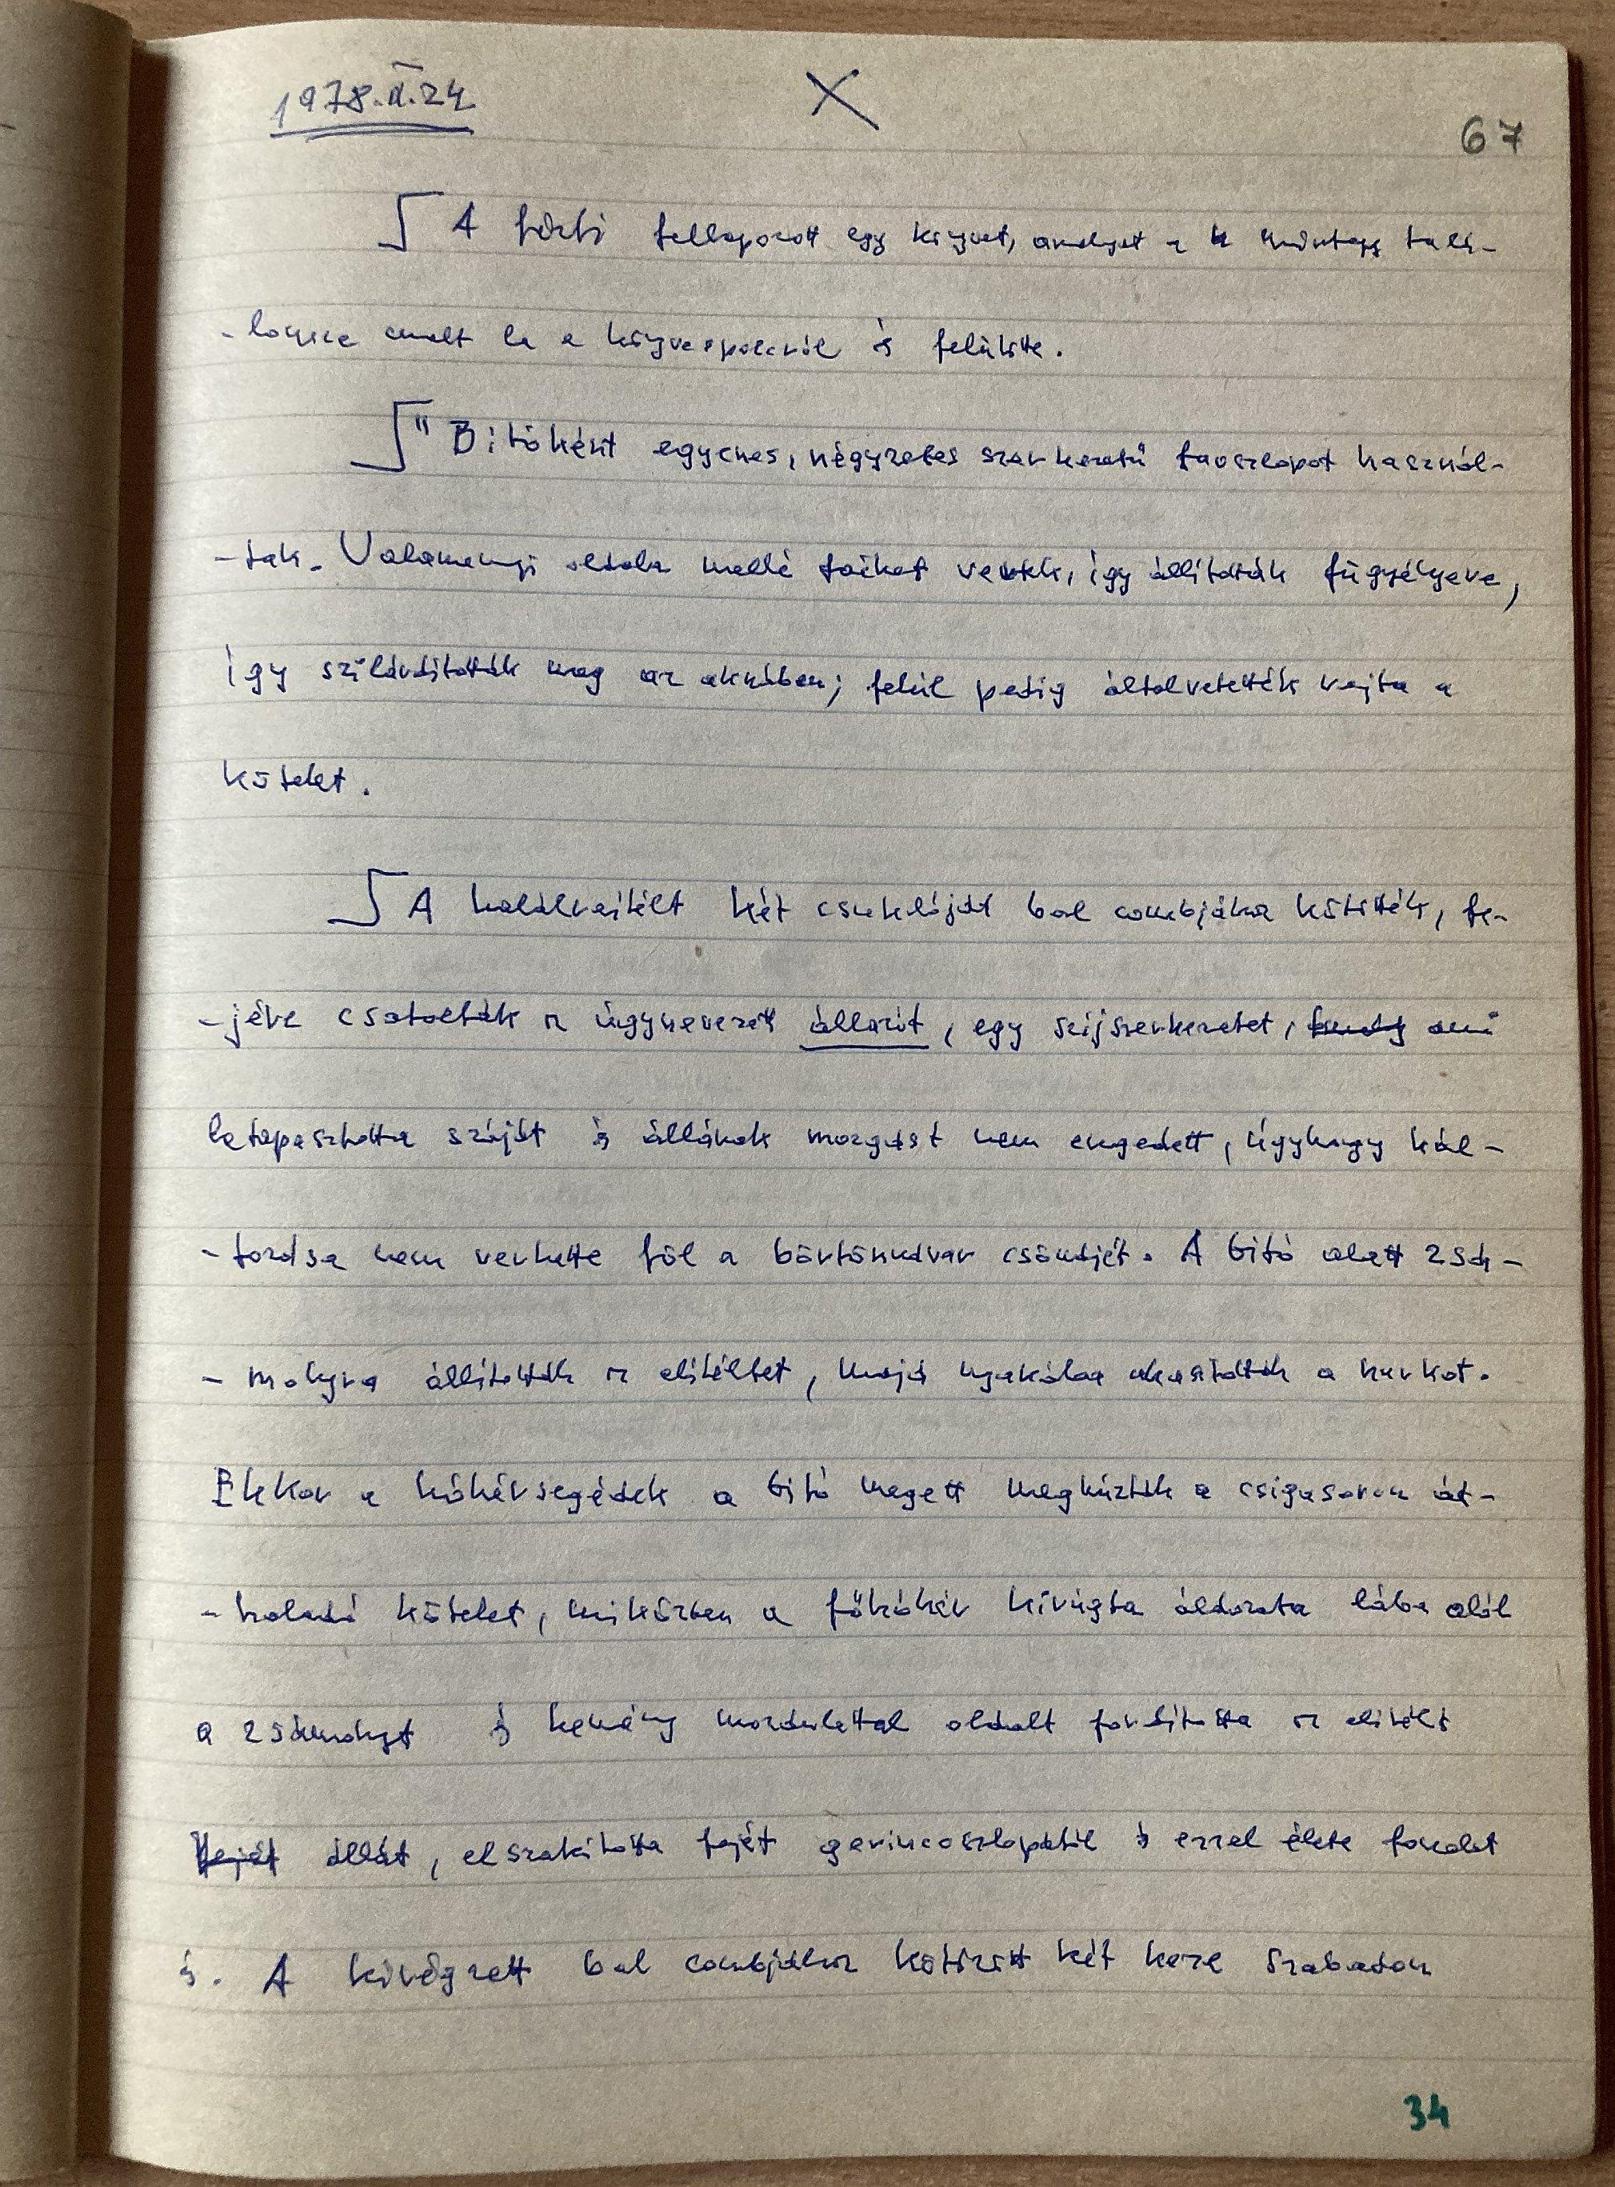 1978.II.24
67
A férfi fellapozott egy könyvet, amelyet a mintegy talá-
-lomra emelt le a könyvespolcról és felütötte.
"Bitóként egyenes, négyzetes szerkezetű faoszlopot használ-
-tak. Valamennyi oldala mellé foéket vertek, így állították függélyere,
így szilárdították meg az aknában; felül pedig általvetették rajta a
kötelet.
A halálraítélt két csuklóját bal combjához kötötték, fe-
-jére csatolták az úgynevezett állazót, egy szíjszerkezetet, ami
letapasztotta száját és állának mozgást nem engedett, úgyhogy kiál-
-tozása nem verhette föl a börtönudvar csöndjét. A bitó alatt zsá-
-molyra állították az elítéltet, majd nyakába akasztották a hurkot.
Ekkor a hóhérsegédek a bitó megett meghúzták a csigasoron át-
-haladó kötelet, miközben a főhóhér kirúgta áldozata lába alól
a zsámolyt és kemény mozdulattal oldalt fordította az elítélt
fejét állát, elszakította fejét gerincoszlopától s ezzel élete fonalát
is. A kivégzett bal combjához kötözött két keze szabadon
34